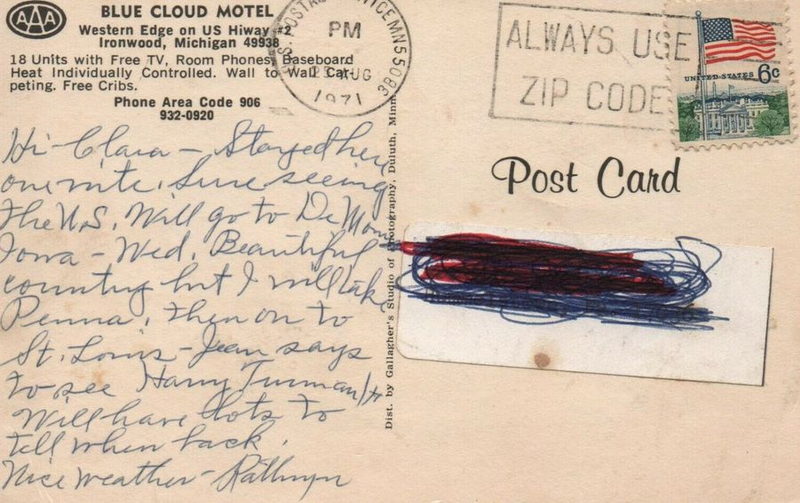 AAA
BLUE CLOUD MOTEL
Western Edge on US Hiway #2
Ironwood, Michigan 49938
18 Units with Free TV, Room Phones, Baseboard
Heat Individually Controlled. Wall to Wall Car-
peting. Free Cribs.
Phone Area Code 906
932-0920
PM
AUG
1971
MN 5508
ALWAYS USE
ZIP CODE
UNITED STATES 6c
Post Card
Dist. by Gallagher's Studio of Photography, Duluth, Minn.
Hi Clara - Stayed here
one nite. Sure seeing
the U.S. Will go to De Moin
Iowa - Wed. Beautiful
country but I will take
Penna. Then on to
St. Louis - Jean says
to see Harry Truman
Will have lots to
tell when back.
Nice weather - Kathryn